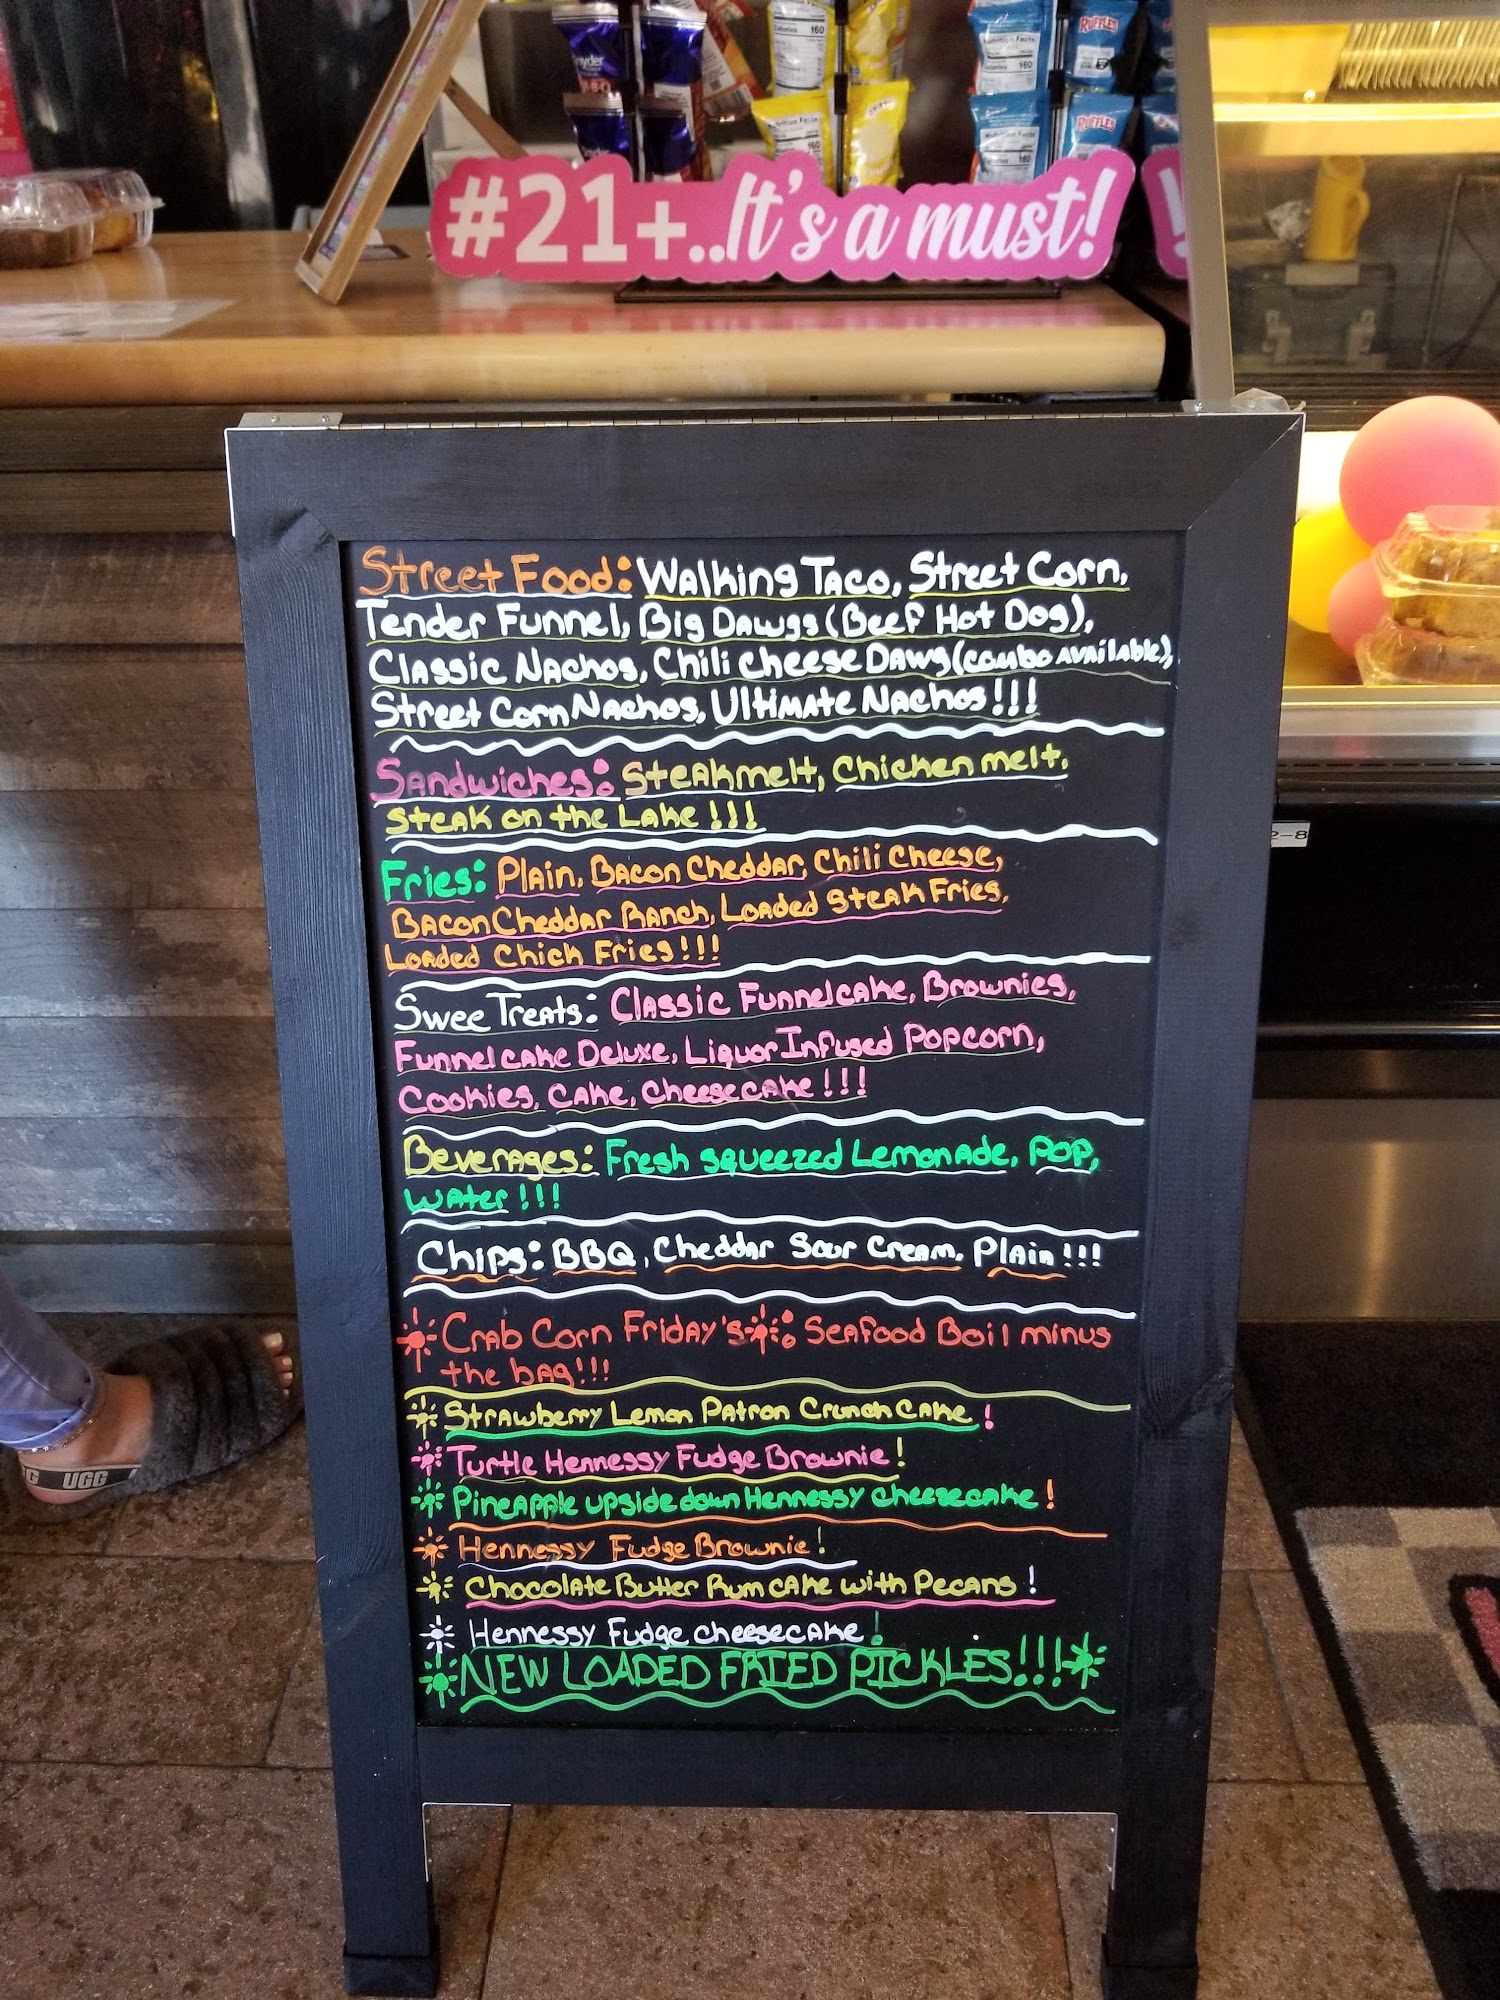 #21+..It's a must!
RUFFLES
RUFFLES
2-8
Street Food: Walking Taco, Street Corn,
Tender Funnel, Big Dawgs (Beef Hot Dog),
Classic Nachos, Chili cheese Dawg (combo available),
Street Corn Nachos, Ultimate Nachos!!!
Sandwiches: Steakmelt, Chicken melt,
Steak on the Lake!!!
Fries: Plain, Bacon Cheddar, Chili Cheese,
Bacon Cheddar Ranch, Loaded Steak Fries,
Loaded Chick Fries!!!
Swee Treats: Classic Funnelcake, Brownies,
Funnelcake Deluxe, Liquor Infused Popcorn,
Cookies, Cake, Cheesecake!!!
Beverages: Fresh squeezed Lemonade, Pop,
Water!!!
Chips: BBQ, Cheddar Sour Cream, Plain!!!
Crab Corn Friday's: Seafood Boil minus
the bag!!!
Strawberry Lemon Patron Crunch Cake!
Turtle Hennessy Fudge Brownie!
Pineapple upside down Hennessy cheesecake!
Hennessy Fudge Brownie!
Chocolate Butter Rum cake with Pecans!
Hennessy Fudge cheesecake!
NEW LOADED FRIED PICKLES!!!
UGG